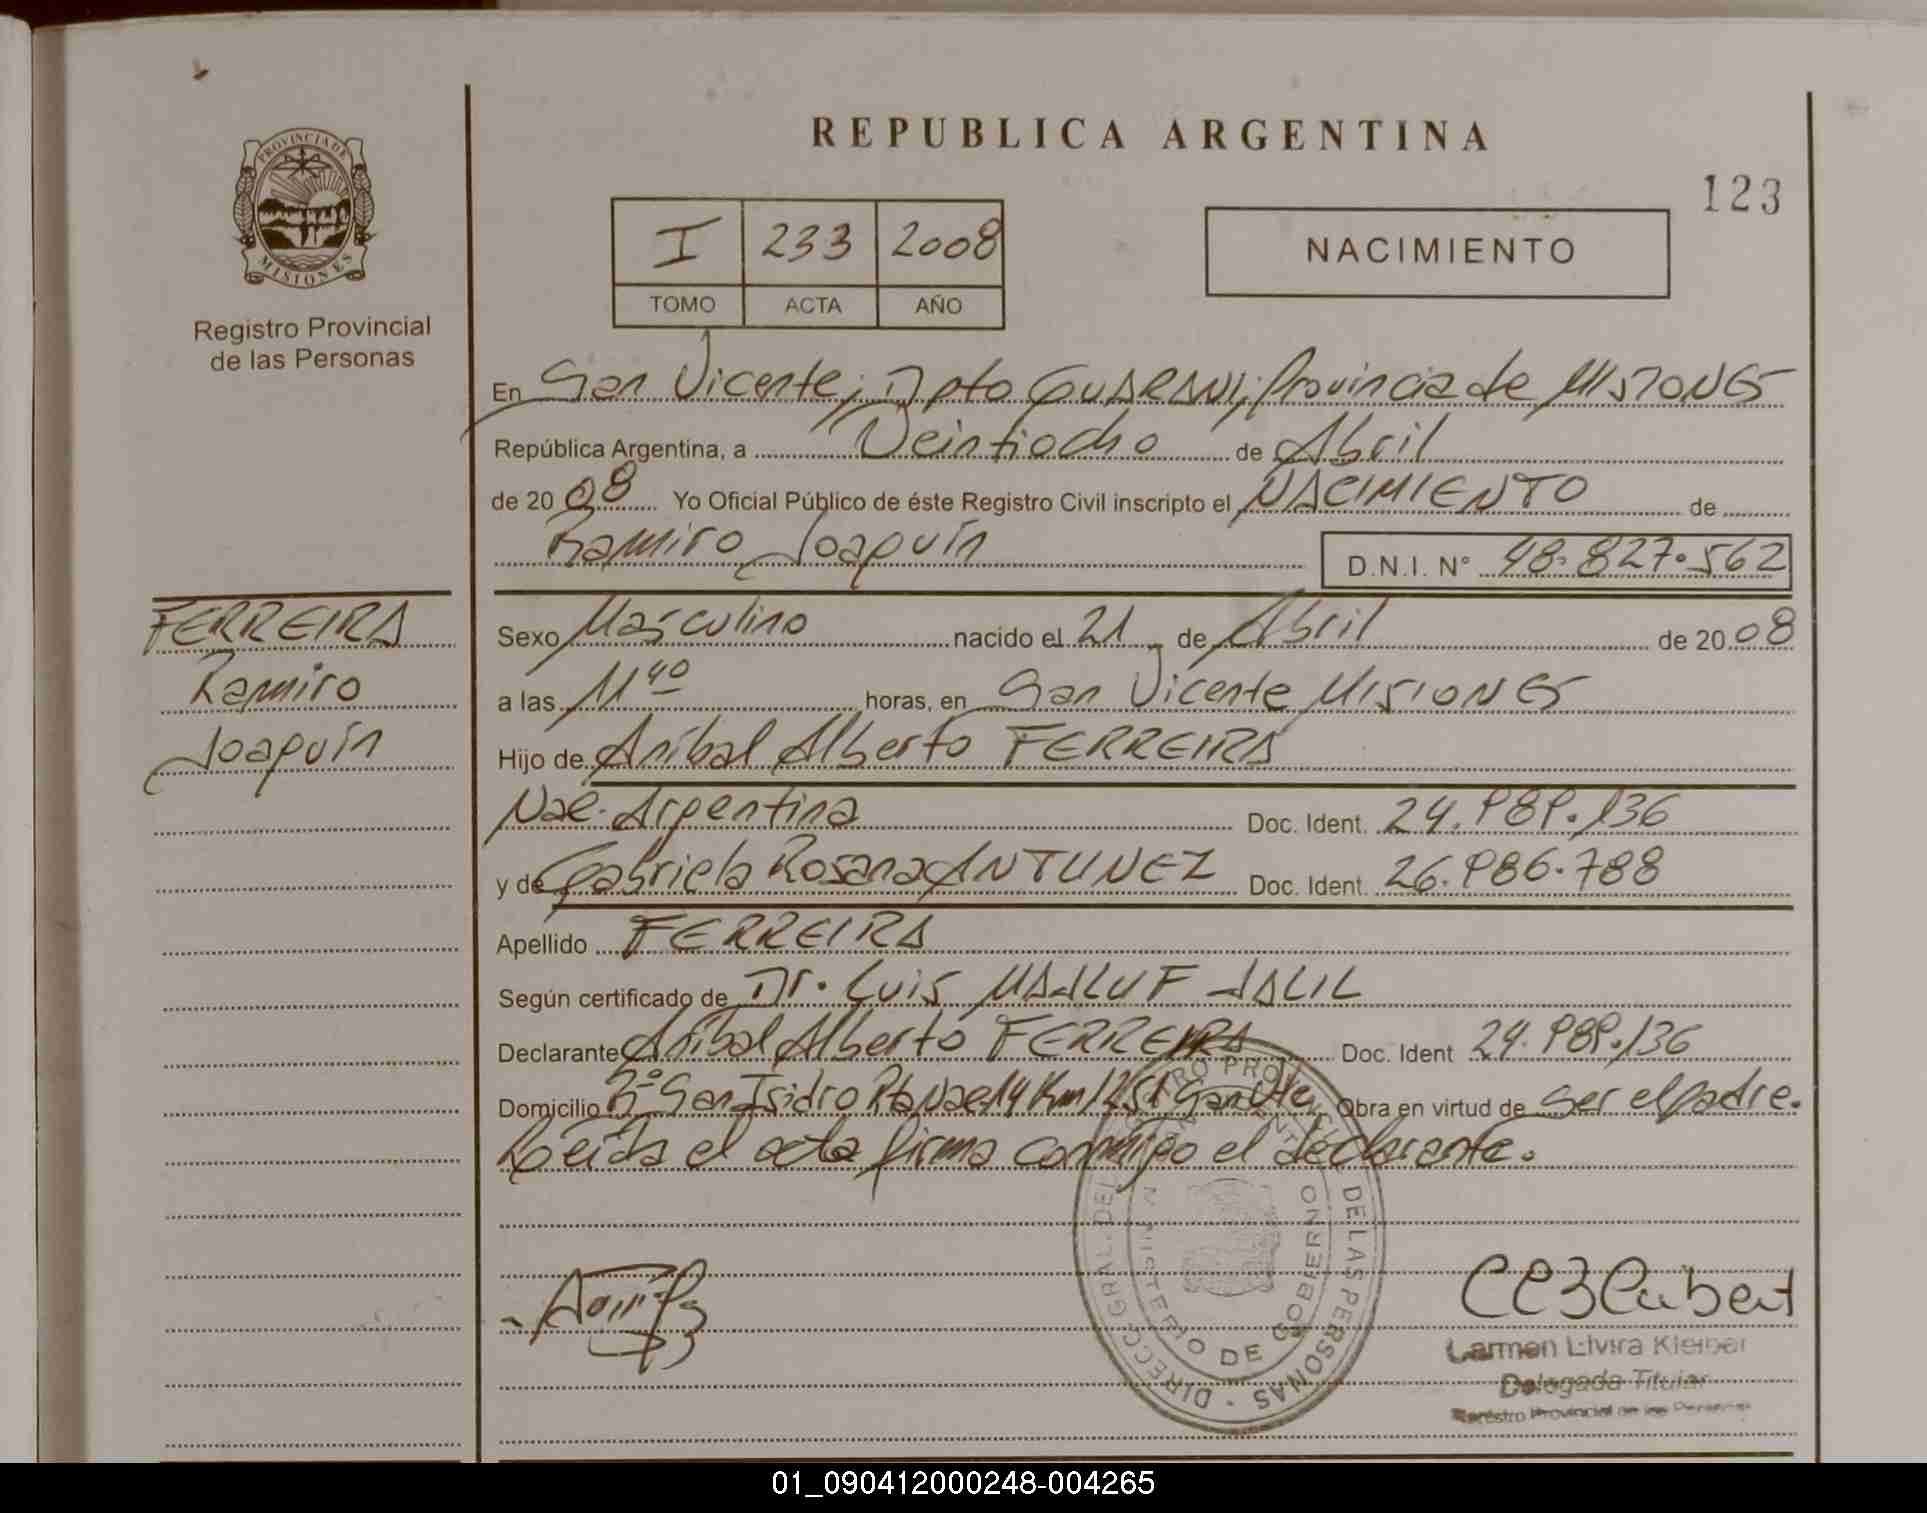 PROVINCIA DE
MISIONES
Registro Provincial
de las Personas
REPUBLICA ARGENTINA
123
I 233 2008
TOMO ACTA AÑO
NACIMIENTO
En San Vicente, Dpto GUARANI, Provincia de MISIONES
República Argentina, a Veintiocho de Abril
de 2008 Yo Oficial Público de éste Registro Civil inscripto el NACIMIENTO de
Ramiro Joaquín D.N.I. N° 48.827.562
FERREIRA
Ramiro
Joaquín
Sexo Masculino nacido el 21 de Abril de 2008
a las 11 40 horas, en San Vicente MISIONES
Hijo de Aníbal Alberto FERREIRA
Nac. Argentina Doc. Ident. 24.989.136
y de Gabriela Rosana ANTUNEZ Doc. Ident. 26.986.788
Apellido FERREIRA
Según certificado de Dr. Luis MAHLUF JALIL
Declarante Aníbal Alberto FERREIRA Doc. Ident 24.989.136
Domicilio Bº San Isidro Rta Nac 14 Km 1251 San Vte, Obra en virtud de ser el padre.
Leída el acta firma conmigo el declarante.
DIRECC. GRAL. DEL REGISTRO PROVINCIAL DE LAS PERSONAS
MINISTERIO DE GOBIERNO
Carmen Elvira Kleiber
Delegada Titular
Registro Provincial de las Personas
01_090412000248-004265